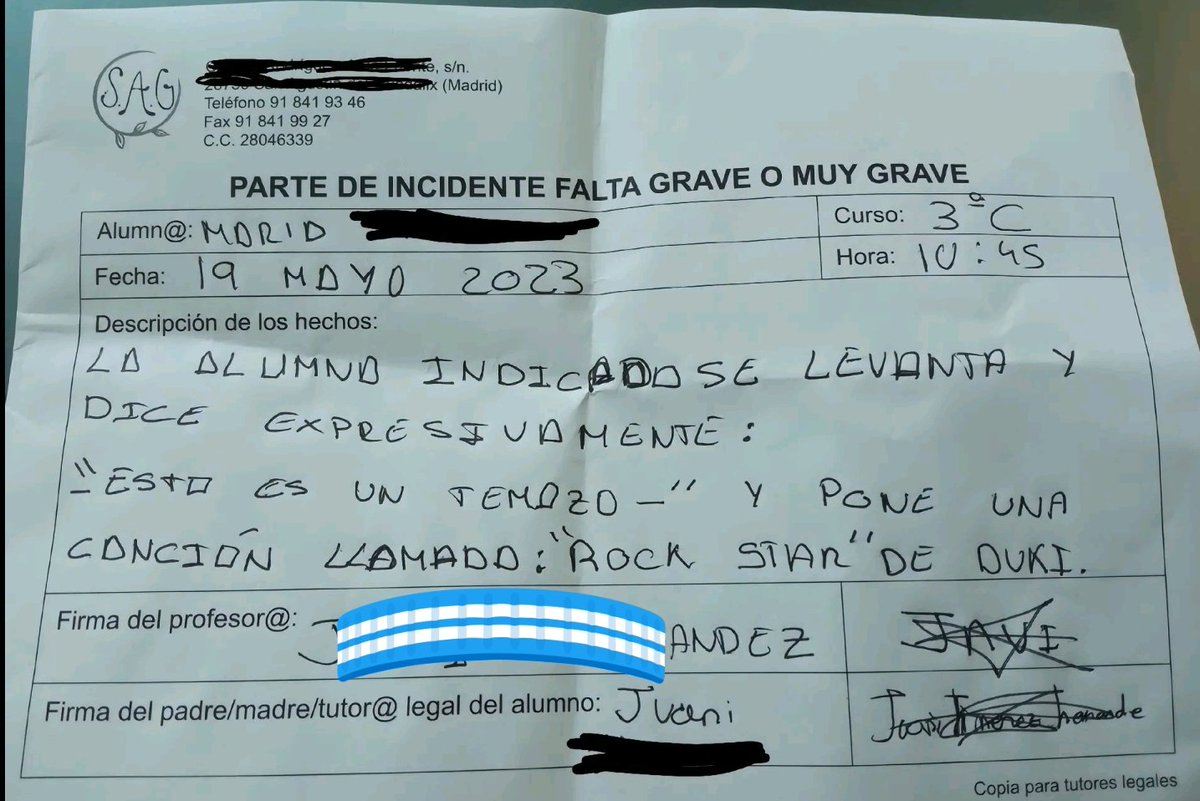 S.A.G
, s/n.
(Madrid)
Teléfono 91 841 93 46
Fax 91 841 99 27
C.C. 28046339
PARTE DE INCIDENTE FALTA GRAVE O MUY GRAVE
Alumn@: MDRID
Curso: 3ª C
Fecha: 19 MAYO 2023
Hora: 10:45
Descripción de los hechos:
LA ALUMNA INDICADA SE LEVANTA Y
DICE EXPRESIVAMENTE:
"-ESTO ES UN TEMAZO-" Y PONE UNA
CANCIÓN LLAMADO: "ROCK STAR" DE DUKI.
Firma del profesor@: J ANDEZ
JAVI
Firma del padre/madre/tutor@ legal del alumno: Juani
Juani
Copia para tutores legales